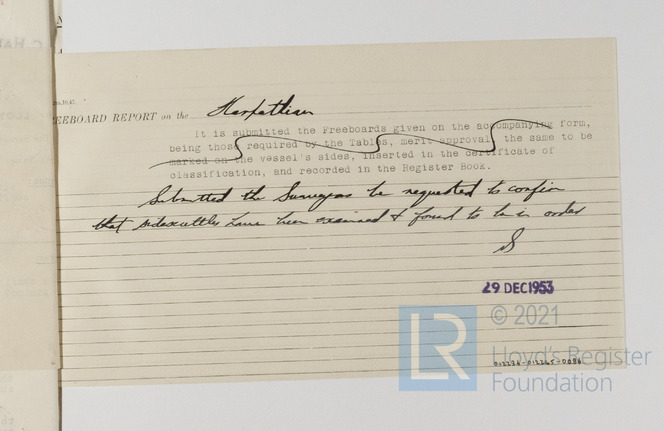 REEBOARD REPORT on the Harpathian
It is submitted the Freeboards given on the accompanying form,
being those required by the Tables, merit approval, the same to be
marked on the vessel's sides, inserted in the certificate of
classification, and recorded in the Register Book.
Submitted the Surveyors be requested to confirm
that sidescuttles have been examined & found to be in order
29 DEC 1953
© 2021
LR
Lloyd's Register
Foundation
012236-012265-0086